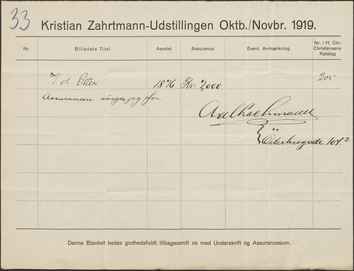 33
Kristian Zahrtmann-Udstillingen Oktb./Novbr. 1919.
Nr. Billedets Titel. Aarstal. Assurance. Event. Anmærkning. Nr. i H. Chr. Christensens Katalog
1876 Kr 2000 205
Assurancen sørger jeg for
Denne Blanket bedes godhedsfuldt tilbagesendt os med Underskrift og Assurancesum.